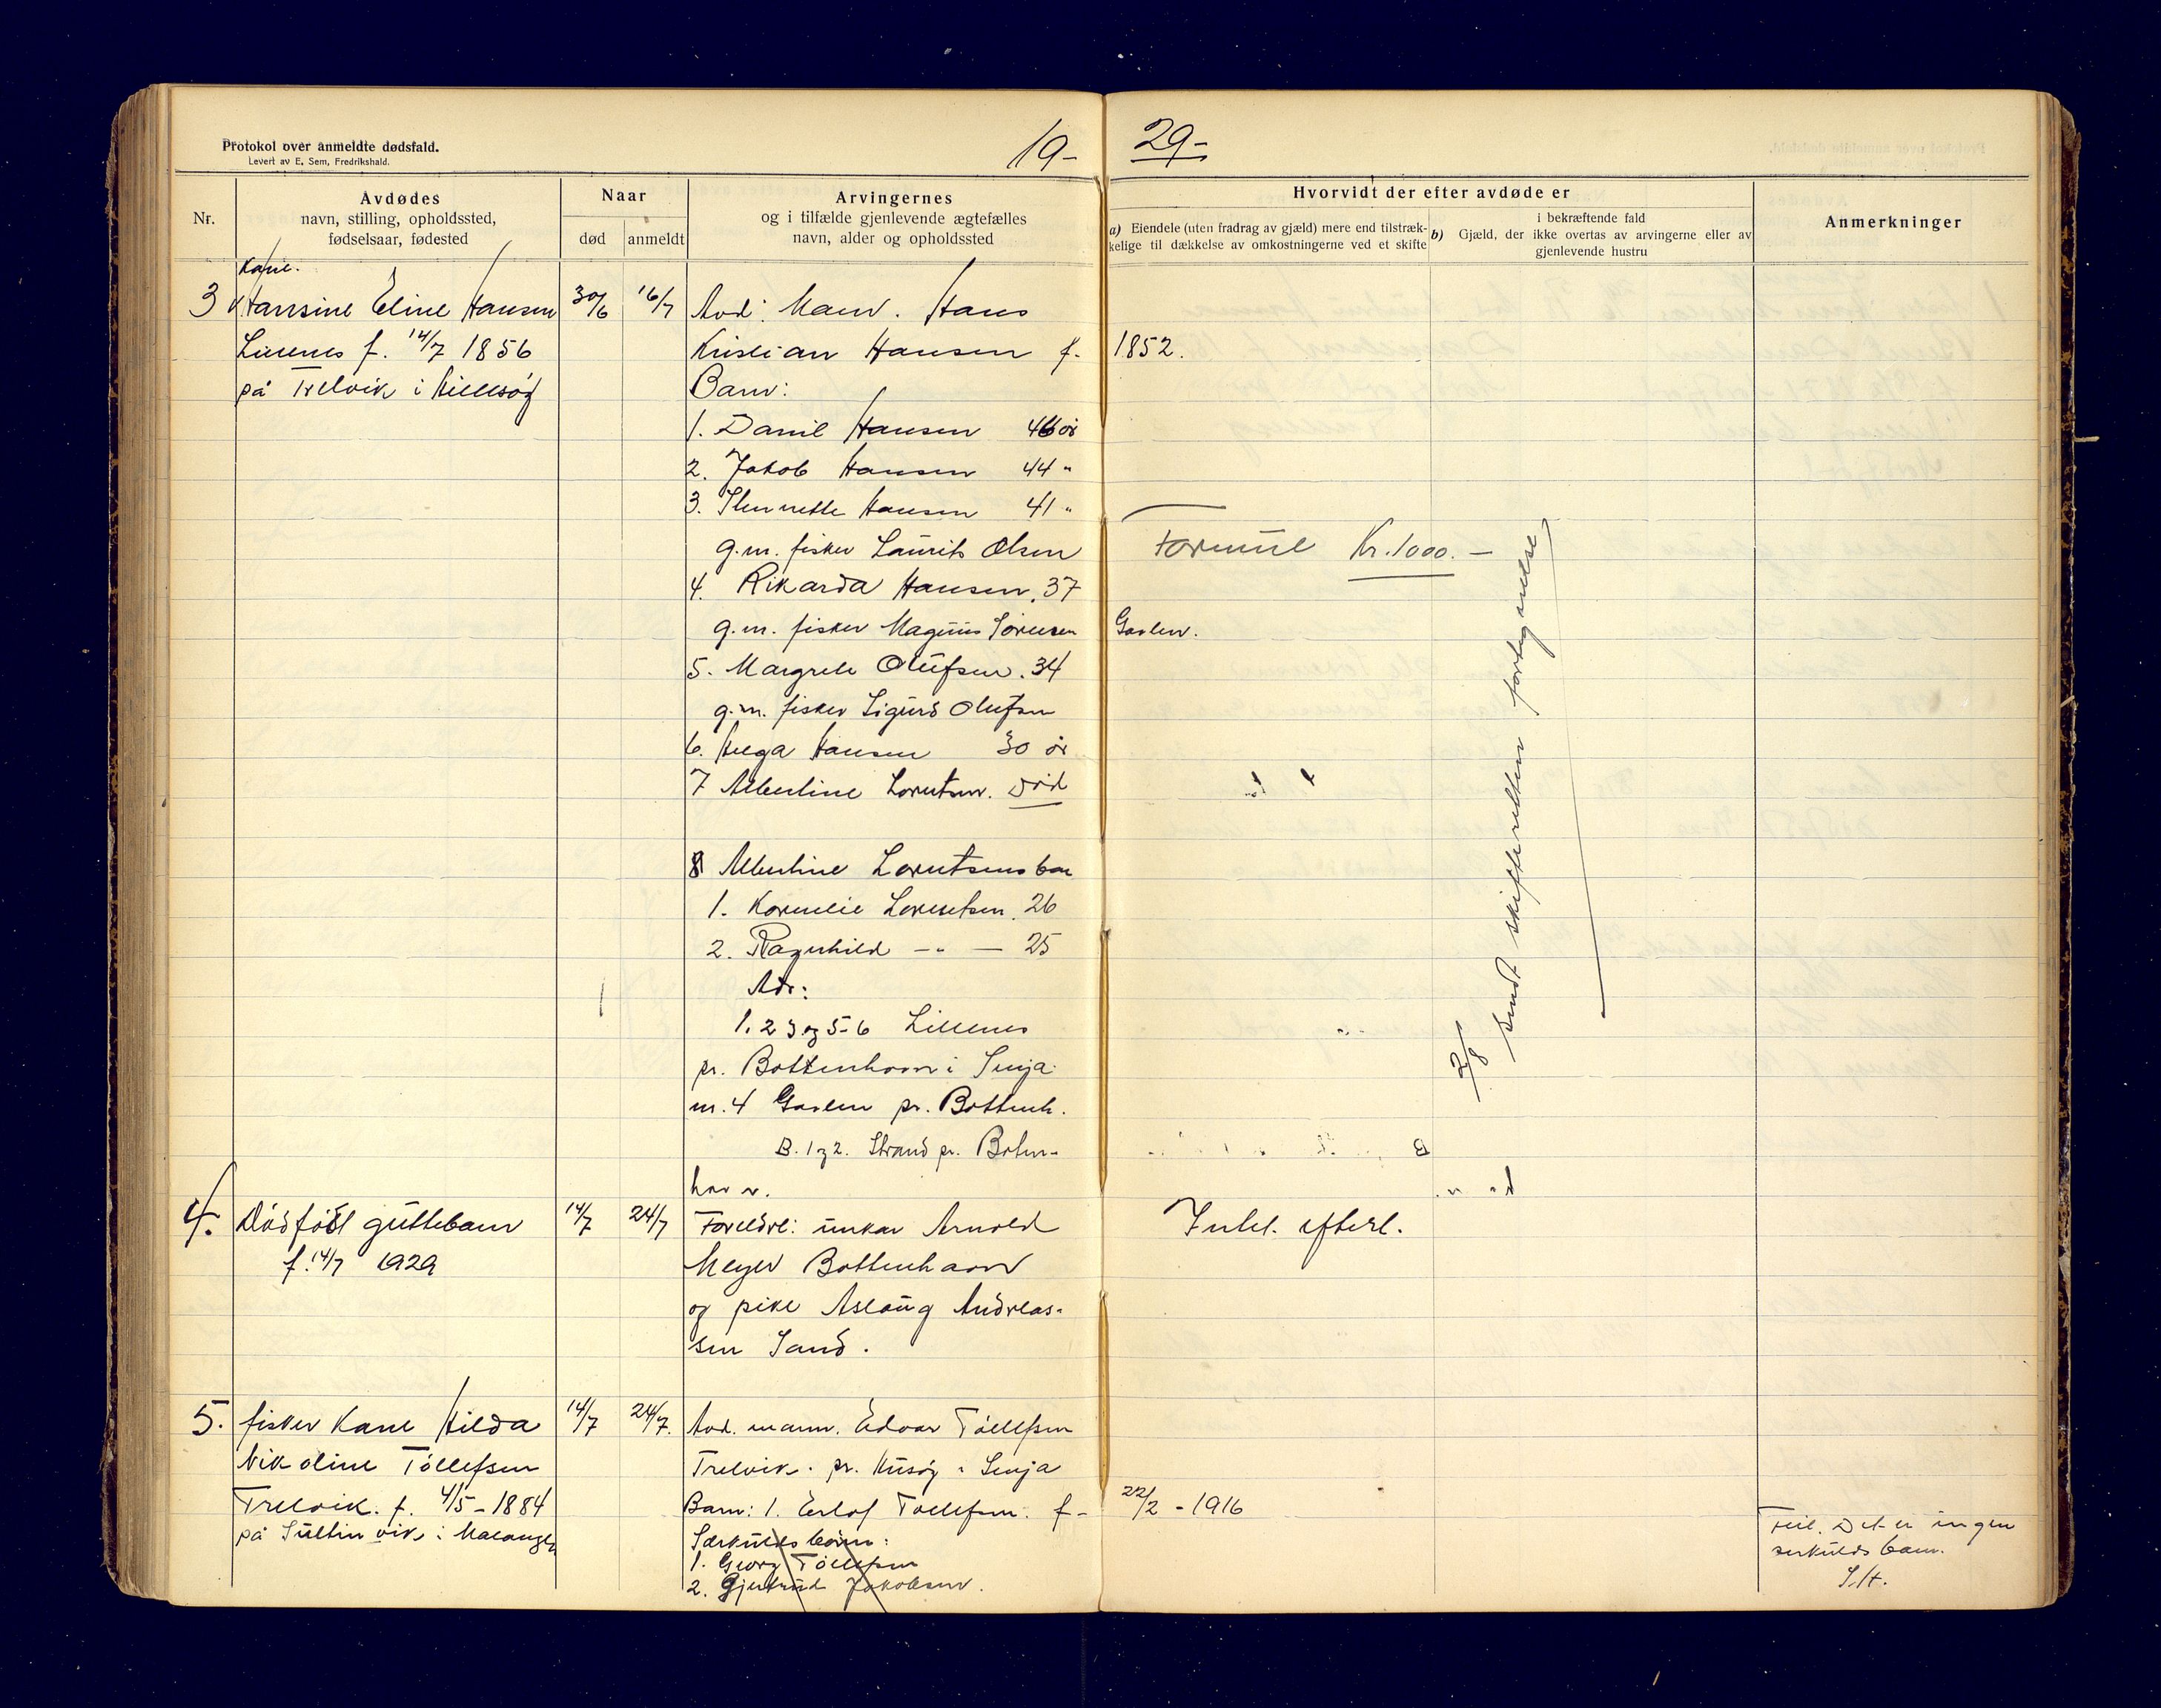 Protokol over anmeldte dødsfald.
Levert av E. Sem, Fredrikshald.
19- 29-
Nr.
Avdødes
navn, stilling, opholdssted,
fødselsaar, fødested
Naar
død
anmeldt
Arvingernes
og i tilfælde gjenlevende ægtefælles
navn, alder og opholdssted
Hvorvidt der efter avdøde er
a) Eiendele (uten fradrag av gjæld) mere end tilstræk-
kelige til dækkelse av omkostningerne ved et skifte
i bekræftende fald
b) Gjæld, der ikke overtas av arvingerne eller av
gjenlevende hustru
Anmerkninger
Kone.
3 Hansine Eline Hansen
Lillenes f. 14/7 1856
på Trelvik i Hillesøy
30/6 16/7
Avd: Mann. Hans
Kristian Hansen f. 1852.
Barn:
1. Daniel Hansen 46 år
2. Jakob Hansen 44 "
3. Hansen 41 "
g.m. fisker Laurits Olsen
4. Rikarda Hansen. 37
g.m. fisker Magnus Sørensen Gaslen.
5. Margrete Olufsen. 34
g.m. fisker Sigurd Olufsen
6. Helga Hansen 30 år
7 Albertine Lorentsen. død
8 Albertine Lorentsens barn
1. Kornelie Lorentsen. 26
2. Ragnhild -"- 25
Adr:
1. 2 3 og 5-6 Lillenes
pr. Bottenhavn i Senja
nr. 4 Gaslen pr. Bottenh.
B. 1 og 2. Strand pr. Boten-
havn.
Formue Kr. 1000.-
2/8 sendt skifteretten fortegnelse
4. Dødfødt guttebarn
f. 14/7 1929
14/7 24/7
Foreldre: unkar Arnold
Meyer Bottenhavn
og pike Aslaug Andreas-
sen Sand.
Intet efterl.
5. fisker Kone Hilda
Nikoline Tøllefsen
Trelvik. f. 4/5-1884
på Sultinvik i Malangen
14/7 24/7.
Avd. mann. Edvar Tøllefsen
Trelvik. pr. Kusøy i Senja
Barn: 1. Erlof Tøllefsen. f- 22/2 - 1916
Særkulds børn:
1. Georg Tøllefsen
2. Gjertrud Jakobsen.
Feil. Det er ingen
serkulds barn.
S.H.